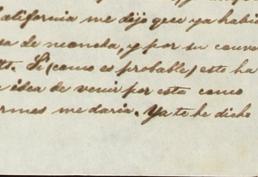 California me dijo que ya habia
sa de mancha, y por su conve
to. Si (como es probable) esto ha
idea de venir por esta como
ormes me daria. Ya te he dicho